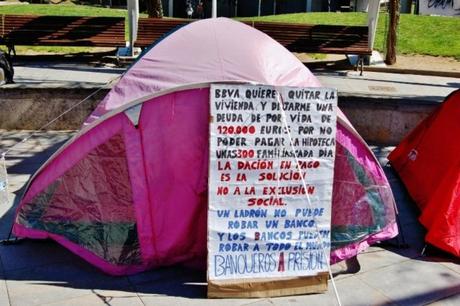 BBVA QUIERE QUITAR LA
VIVIENDA Y DEJARME UNA
DEUDA DE POR VIDA DE
120.000 EUROS POR NO
PODER PAGAR LA HIPOTECA
UNAS 300 FAMILIAS CADA
DIA
LA DACIÓN EN PAGO
ES LA SOLUCIÓN
NO A LA EXCLUSIÓN
SOCIAL.
UN LADRÓN NO PUEDE
ROBAR UN BANCO,
Y LOS BANCOS PUEDEN
ROBAR A TODO EL MUNDO
BANQUEROS A PRISIÓN